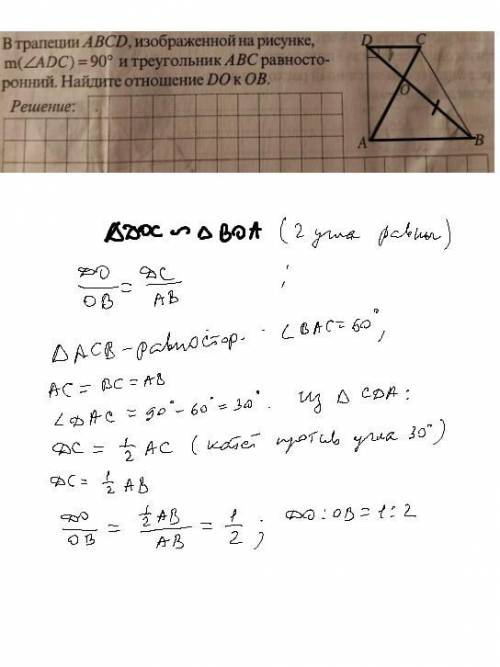 В трапеции ABCD, изображенной на рисунке,
m(∠ADC) = 90° и треугольник ABC равносто-
ронний. Найдите отношение DO к OB.
Решение:
D C
O
A B
ΔDOC ∽ ΔBOA (2 угла равны)
DO/OB = DC/AB ;
ΔACB – равностор. ∠BAC = 60°,
AC = BC = AB
∠DAC = 90° - 60° = 30°. Из Δ CDA:
DC = 1/2 AC (катет против угла 30°)
DC = 1/2 AB
DO/OB = 1/2 AB/AB = 1/2 ; DO : OB = 1 : 2